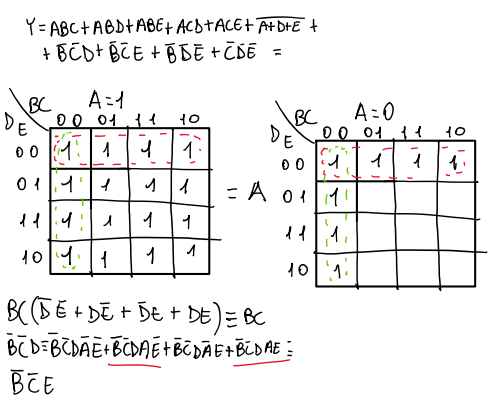 Y=ABC+ABD+ABE+ACD+ACE+A̅+̅D̅+̅E̅ +
+ B̅C̅D+B̅C̅E + B̅D̅E̅ + C̅D̅E̅ =
BC A=1
DE 00 01 11 10
00 1 1 1 1
01 1 1 1 1
11 1 1 1 1
10 1 1 1 1
= A
BC A=0
DE 00 01 11 10
00 1 1 1 1
01 1
11 1
10 1
BC(D̅E̅ + DE̅ + D̅E + DE) ≡ BC
B̅C̅D≡B̅C̅DA̅E̅+B̅C̅DAE̅+B̅C̅DA̅E+B̅C̅DAE≡
B̅C̅E